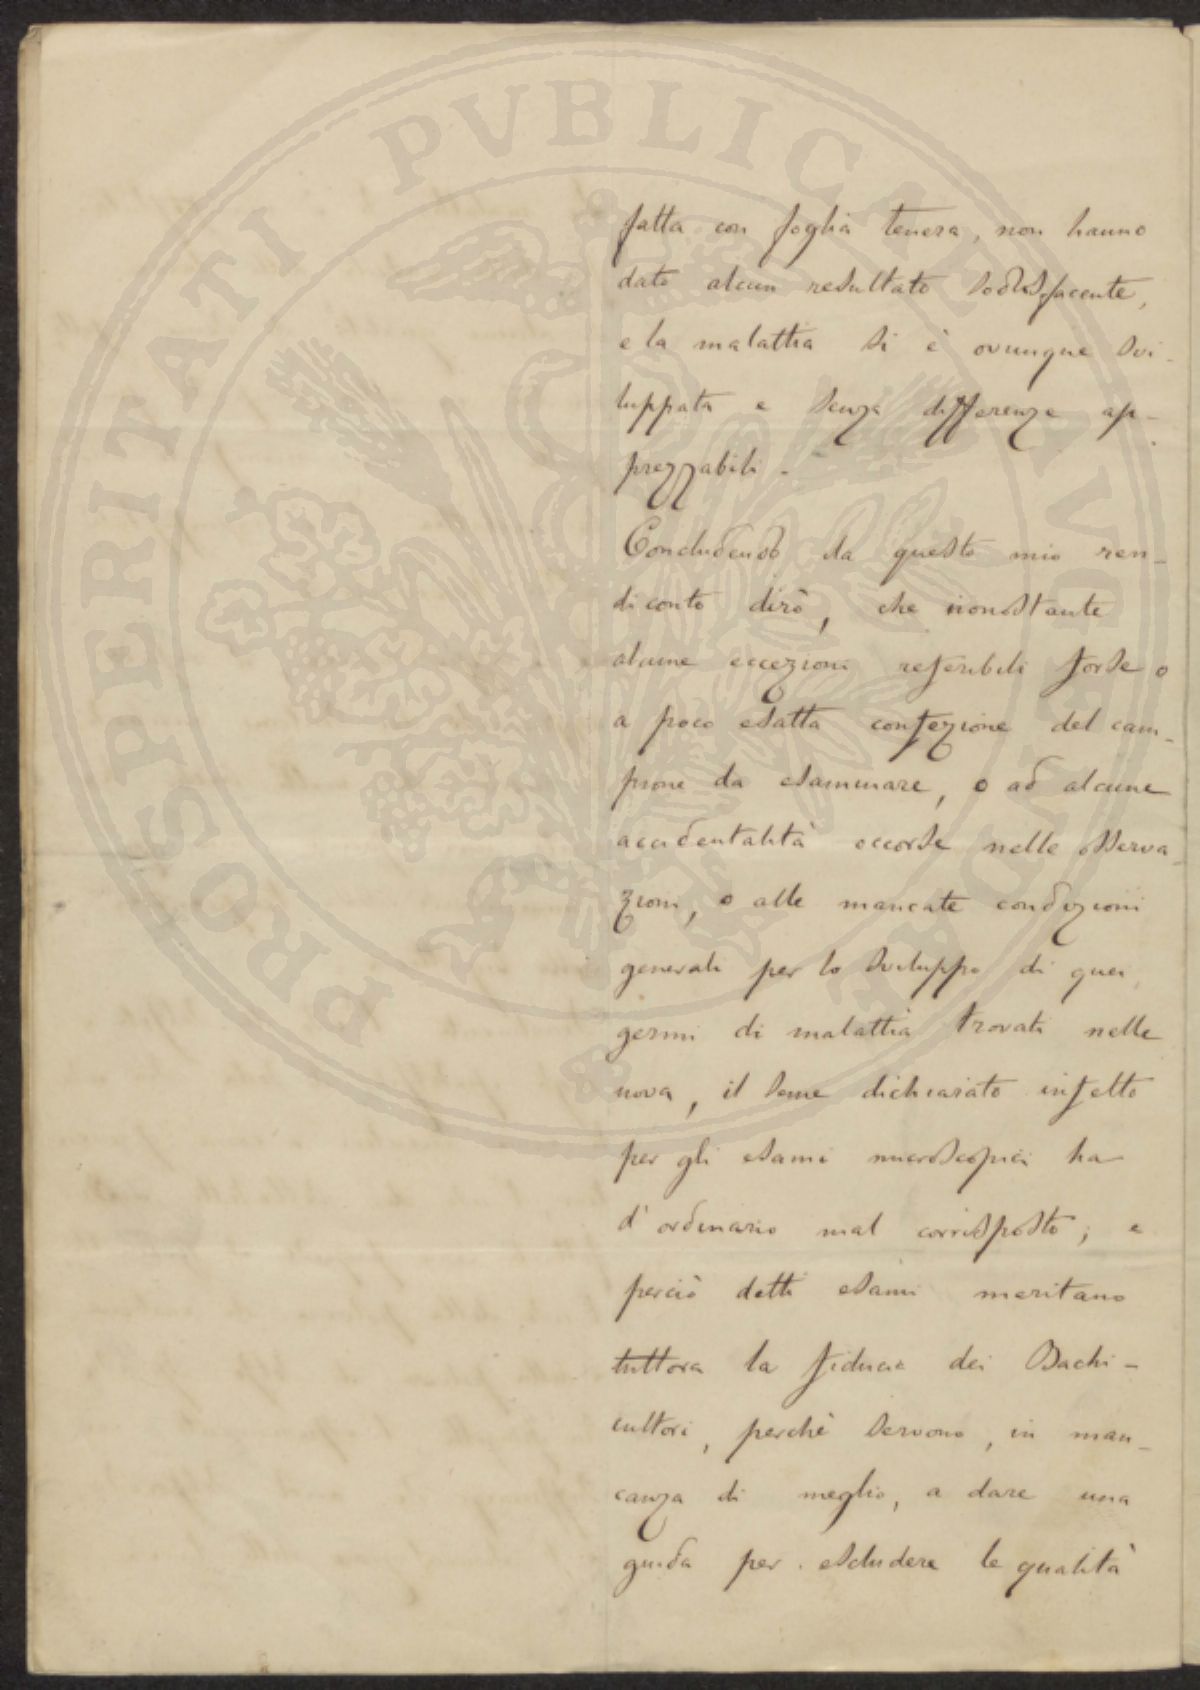 PROSPERITATI PVBLICAE AVGENDAE
fatta con foglia tenera, non hanno
dato alcun resultato sodisfacente,
e la malattia si è ovunque svi-
luppata e senza differenze ap-
prezzabili -
Concludendo da questo mio ren-
diconto dirò, che nonostante
alcune eccezioni referibili forse o
a poco esatta confezione del cam-
pione da esaminare, o ad alcune
accidentalità occorse nelle osserva-
zioni, o alle mancate condizioni
generali per lo sviluppo di quei
germi di malattia trovati nelle
uova, il seme dichiarato infetto
per gli esami microscopici ha
d'ordinario mal corrisposto; e
perciò detti esami meritano
tuttora la fiducia dei Bachi-
cultori, perchè servono, in man-
canza di meglio, a dare una
guida per escludere le qualità